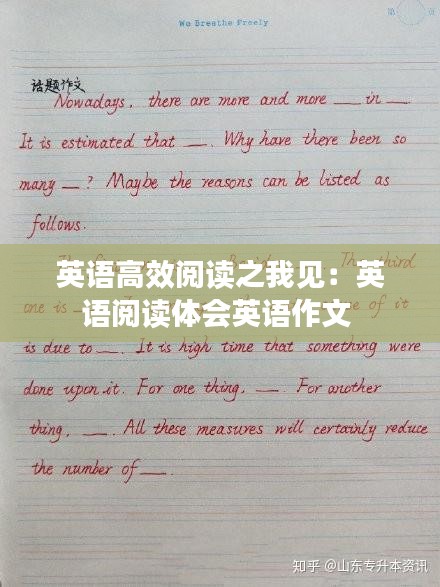 第 页
We Breathe Freely
话题作文
Nowadays, there are more and more __ in __.
It is estimated that __. Why have there been so
many __? Maybe the reasons can be listed as
follows.
英语高效阅读之我见：英
语阅读体会英语作文
third
one is of it
is due to __. It is high time that something were
done upon it. For one thing, __. For another
thing, __. All these measures will certainly reduce
the number of __.
知乎 @山东专升本资讯